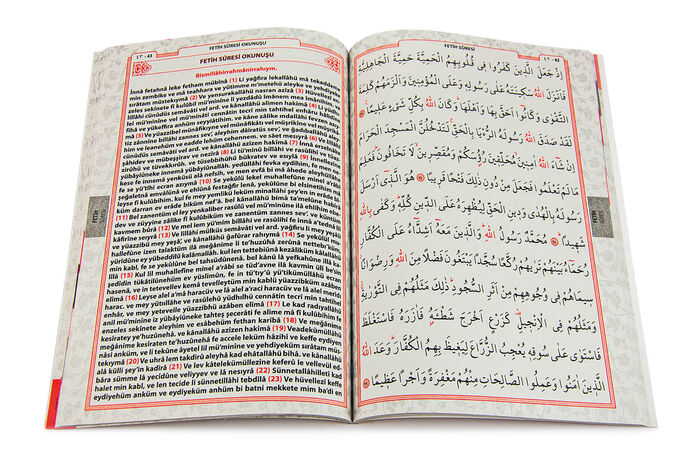 FETİH SÛRESİ
٤٢ - 42
اِذْ جَعَلَ الَّذ۪ينَ كَفَرُوا ف۪ي قُلُوبِهِمُ الْحَمِيَّةَ حَمِيَّةَ الْجَاهِلِيَّةِ
فَاَنْزَلَ اللّٰهُ سَك۪ينَتَهُ عَلٰى رَسُولِه۪ وَعَلَى الْمُؤْمِن۪ينَ وَاَلْزَمَهُمْ كَلِمَةَ
التَّقْوٰى وَكَانُٓوا اَحَقَّ بِهَا وَاَهْلَهَا وَكَانَ اللّٰهُ بِكُلِّ شَيْءٍ عَل۪يمًا
لَقَدْ صَدَقَ اللّٰهُ رَسُولَهُ الرُّءْيَا بِالْحَقِّ لَتَدْخُلُنَّ الْمَسْجِدَ الْحَرَامَ
اِنْ شَٓاءَ اللّٰهُ اٰمِن۪ينَ مُحَلِّق۪ينَ رُؤُسَكُمْ وَمُقَصِّر۪ينَ لَا تَخَافُونَ فَعَلِمَ
مَا لَمْ تَعْلَمُوا فَجَعَلَ مِنْ دُونِ ذٰلِكَ فَتْحًا قَر۪يبًا هُوَ الَّذ۪ٓي اَرْسَلَ
رَسُولَهُ بِالْهُدٰى وَد۪ينِ الْحَقِّ لِيُظْهِرَهُ عَلَى الدّ۪ينِ كُلِّه۪ وَكَفٰى بِاللّٰهِ
شَه۪يدًا مُحَمَّدٌ رَسُولُ اللّٰهِ وَالَّذ۪ينَ مَعَهُٓ اَشِدَّٓاءُ عَلَى الْكُفَّارِ
رُحَمَٓاءُ بَيْنَهُمْ تَرٰيهُمْ رُكَّعًا سُجَّدًا يَبْتَغُونَ فَضْلًا مِنَ اللّٰهِ وَرِضْوَانًا
س۪يمَاهُمْ ف۪ي وُجُوهِهِمْ مِنْ اَثَرِ السُّجُودِ ذٰلِكَ مَثَلُهُمْ فِي التَّوْرٰيةِ
وَمَثَلُهُمْ فِي الْاِنْج۪يلِ كَزَرْعٍ اَخْرَجَ شَطْـَٔهُ فَاٰزَرَهُ فَاسْتَغْلَظَ
فَاسْتَوٰى عَلٰى سُوقِه۪ يُعْجِبُ الزُّرَّاعَ لِيَغ۪يظَ بِهِمُ الْكُفَّارَ وَعَدَ اللّٰهُ
الَّذ۪ينَ اٰمَنُوا وَعَمِلُوا الصَّالِحَاتِ مِنْهُمْ مَغْفِرَةً وَاَجْرًا عَظ۪يمًا
٤٣ - 43
FETİH SÛRESİ OKUNUŞU
FETİH SÛRESİ OKUNUŞU
Bismillâhirrahmânirrahıym.
İnnâ fetahnâ leke fetham mübînâ (1) Li yağfira lekallâhü mâ tekaddem
min zembike ve mâ teahhara ve yütimme n'metehû aleyke ve yehdiyeke
sırâtam müstekıymâ (2) Ve yensurakallâhü nasran azîzâ (3) Hüvellezî en
zeles sekînete fî kulûbil mü'minîne li yezdâdû îmânem mea îmânihim, ve
lillâhi cünûdüs semâvâti vel ard. ve kânallâhü alîmen hakîmâ (4) Li
mü'minîne vel mü'minâti cennâtin tecrî min tahtihel enhâru hâlidîne
fîhâ ve yükeffira anhüm seyyiâtihim. ve kâne zâlike ındallâhi fevzen azıy
mâ (5) Ve yüazzibel münâfikıyne vel münâfikâti vel müşrikîne vel müşrikâ
tiz zânnîne billâhi zannes sev', aleyhim dâiratüs sev', ve ğadıballâhü aley
him ve leanehüm ve eadde lehüm cehennem. ve sâet mesıyrâ (6) Ve lillâhi
cünûdüs semâvâti vel ard. ve kânallâhü azîzen hakîmâ (7) İnnâ erselnâke
şâhidev ve mübeşşirav ve nezîrâ (8) Li tü'minû billâhi ve rasûlihî ve tüaz
zirûhü ve tüvekkırûh. ve tüsebbihûhü bükratev ve esıylâ (9) İnnellezîne
yübâyiûneke innemâ yübâyiûnallâh. yedüllâhi fevka eydîhim, fe men neke
se fe innemâ yenküsü alâ nefsih, ve men evfâ bi mâ âhede aleyhüllâhe
fe se yü'tîhi ecran azıymâ (10) Se yekûlü lekel muhallefûne minel a'râbi
şeğaletnâ emvâlünâ ve ehlûnâ festağfir lenâ, yekûlûne bi elsinetihim mâ
leyse fî kulûbihim. kul fe mey yemlikü leküm minallâhi şey'en in erâde bi
küm darran ev erâde biküm nef'â. bel kânallâhü bimâ ta'melûne habîrâ
(11) Bel zanentüm el ley yenkaliber rasûlü vel mü'minûne ilâ ehlîhim ebe
dev ve züyyine zâlike fî kulûbiküm ve zanentüm zannes sev', ve küntüm
kavmem bûrâ (12) Ve mel lem yü'mim billâhi ve rasûlihî fe innâ a'tednâ lil
kâfirîne seıyrâ (13) Ve lillâhi mülküs semâvâti vel ard. yağfiru li mey yeşâü
ve yüazzibü mey yeşâ', ve kânallâhü ğafûrar rahıymâ (14) Se yekûlül mu
hallefûne izen talaktüm ilâ meğânime li te'huzûhâ zerûnâ nettebı'küm,
yürîdûne ey yübeddilû kelâmallâh, kul len tettebiûnâ kezâliküm kâlallâhü
min kabl, fe se yekûlûne bel tahsüdûnenâ. bel kânû lâ yefkahûne illâ kalîlâ
(15) Kul lil muhallefîne minel a'râbi se tüd'avne ilâ kavmin ülî be'sin
şedîdin tükâtilûnehüm ev yüslimûn, fe in tü'tıy'û yü'tikümüllâhü ecran
hasenâ, ve in tetevellev kemâ tevelleytüm min kablü yüazzibküm azâben
elîmâ (16) Leyse alel a'mâ haracüv ve lâ alel a'raci haracüv ve lâ alel merıdı
harac. ve mey yütıillâhe ve rasûlehû yüdhılhü cennâtin tecrî min tahtihel
enhâr, ve mey yetevelle yüazzibhü azâben elîmâ (17) Le kad radıyallâhü
anil mü'minîne iz yübâyiûneke tahteş şecerâti fe alime mâ fî kulûbihim fe
enzeles sekînete aleyhim ve esâbehüm fethan karîbâ (18) Ve meğânime
kesîratey ye'huzûnehâ. ve kânallâhü azîzen hakîmâ (19) Veadekümüllâhü
meğânime kesîraten te'huzûnehâ fe accele leküm hâzihî ve keffe eydiyen
nâsi anküm, ve li tekûne âyetel lil mü'minîne ve yehdiyeküm sırâtam müs
tekıymâ (20) Ve uhrâ lem takdirû aleyhâ kad ehâtallâhü bihâ. ve kânallâhü
alâ külli şey'in kadîrâ (21) Ve lev kâtelekümüllezîne keferû le vellevül ed
bâra sümme lâ yecidûne veliyyev ve lâ nesıyrâ (22) Sünnetallâhilletî kad
halet min kabl, ve len tecide li sünnetillâhi tebdîlâ (23) Ve hüvellezî keffe
eydiyehüm anküm ve eydiyeküm anhüm bi batni mekkete mim ba'di en